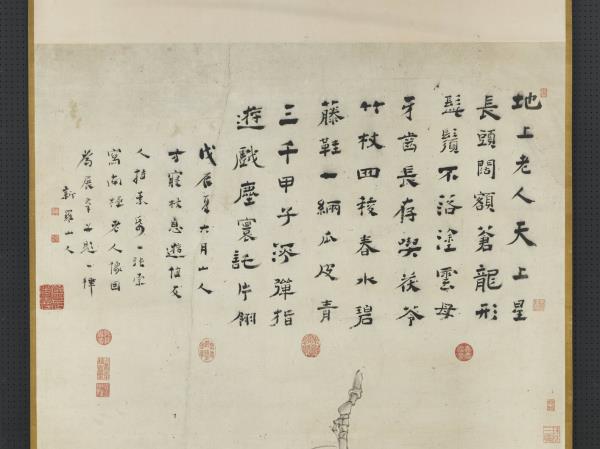 地上老人天上星
長頭闊額蒼龍形
髭鬚不落塗雲母
牙齒長存喫茯苓
竹杖四稜春水碧
藤鞋一緉瓜皮青
三千甲子彈指
遊戲塵寰託片翎
戊辰夏六月山人
才寤枕息遊友
人持素一張索
寫南極老人像因
為展筆並題一律
新羅山人